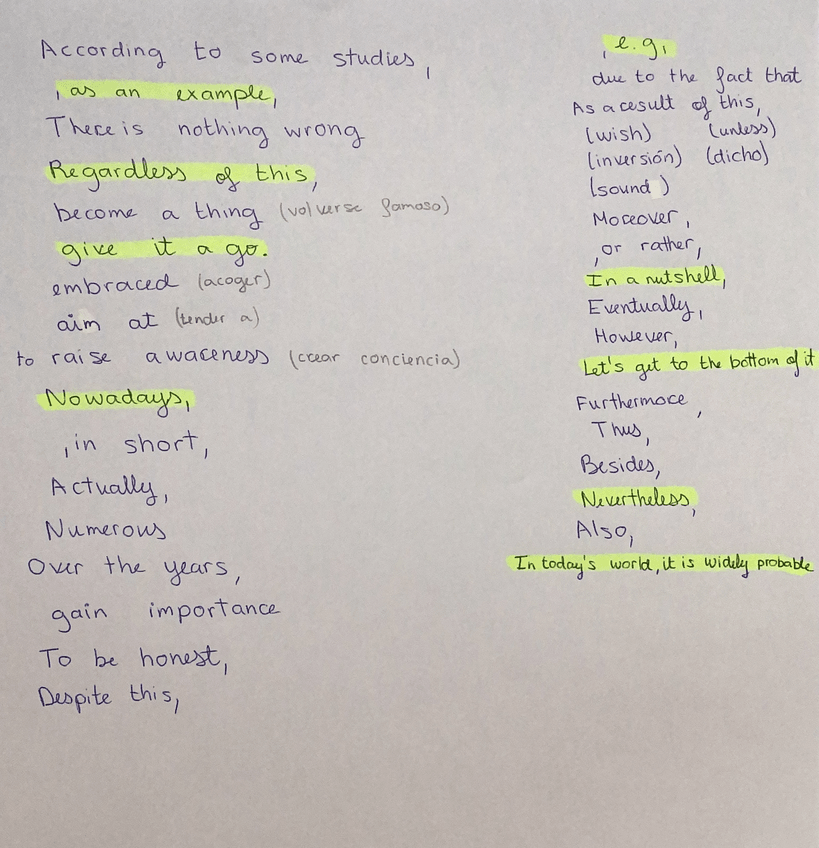 According to some studies,
, as an example,
There is nothing wrong
Regardless of this,
become a thing (volverse famoso)
give it a go.
embraced (acoger)
aim at (tender a)
to raise awareness (crear conciencia)
Nowadays,
, in short,
Actually,
Numerous
Over the years,
gain importance
To be honest,
Despite this,
, e.g,
due to the fact that
As a result of this,
(wish) (unless)
(inversión) (dicho)
(sound )
Moreover,
, or rather,
In a nutshell,
Eventually,
However,
Let's get to the bottom of it
Furthermore,
Thus,
Besides,
Nevertheless,
Also,
In today's world, it is widely probable